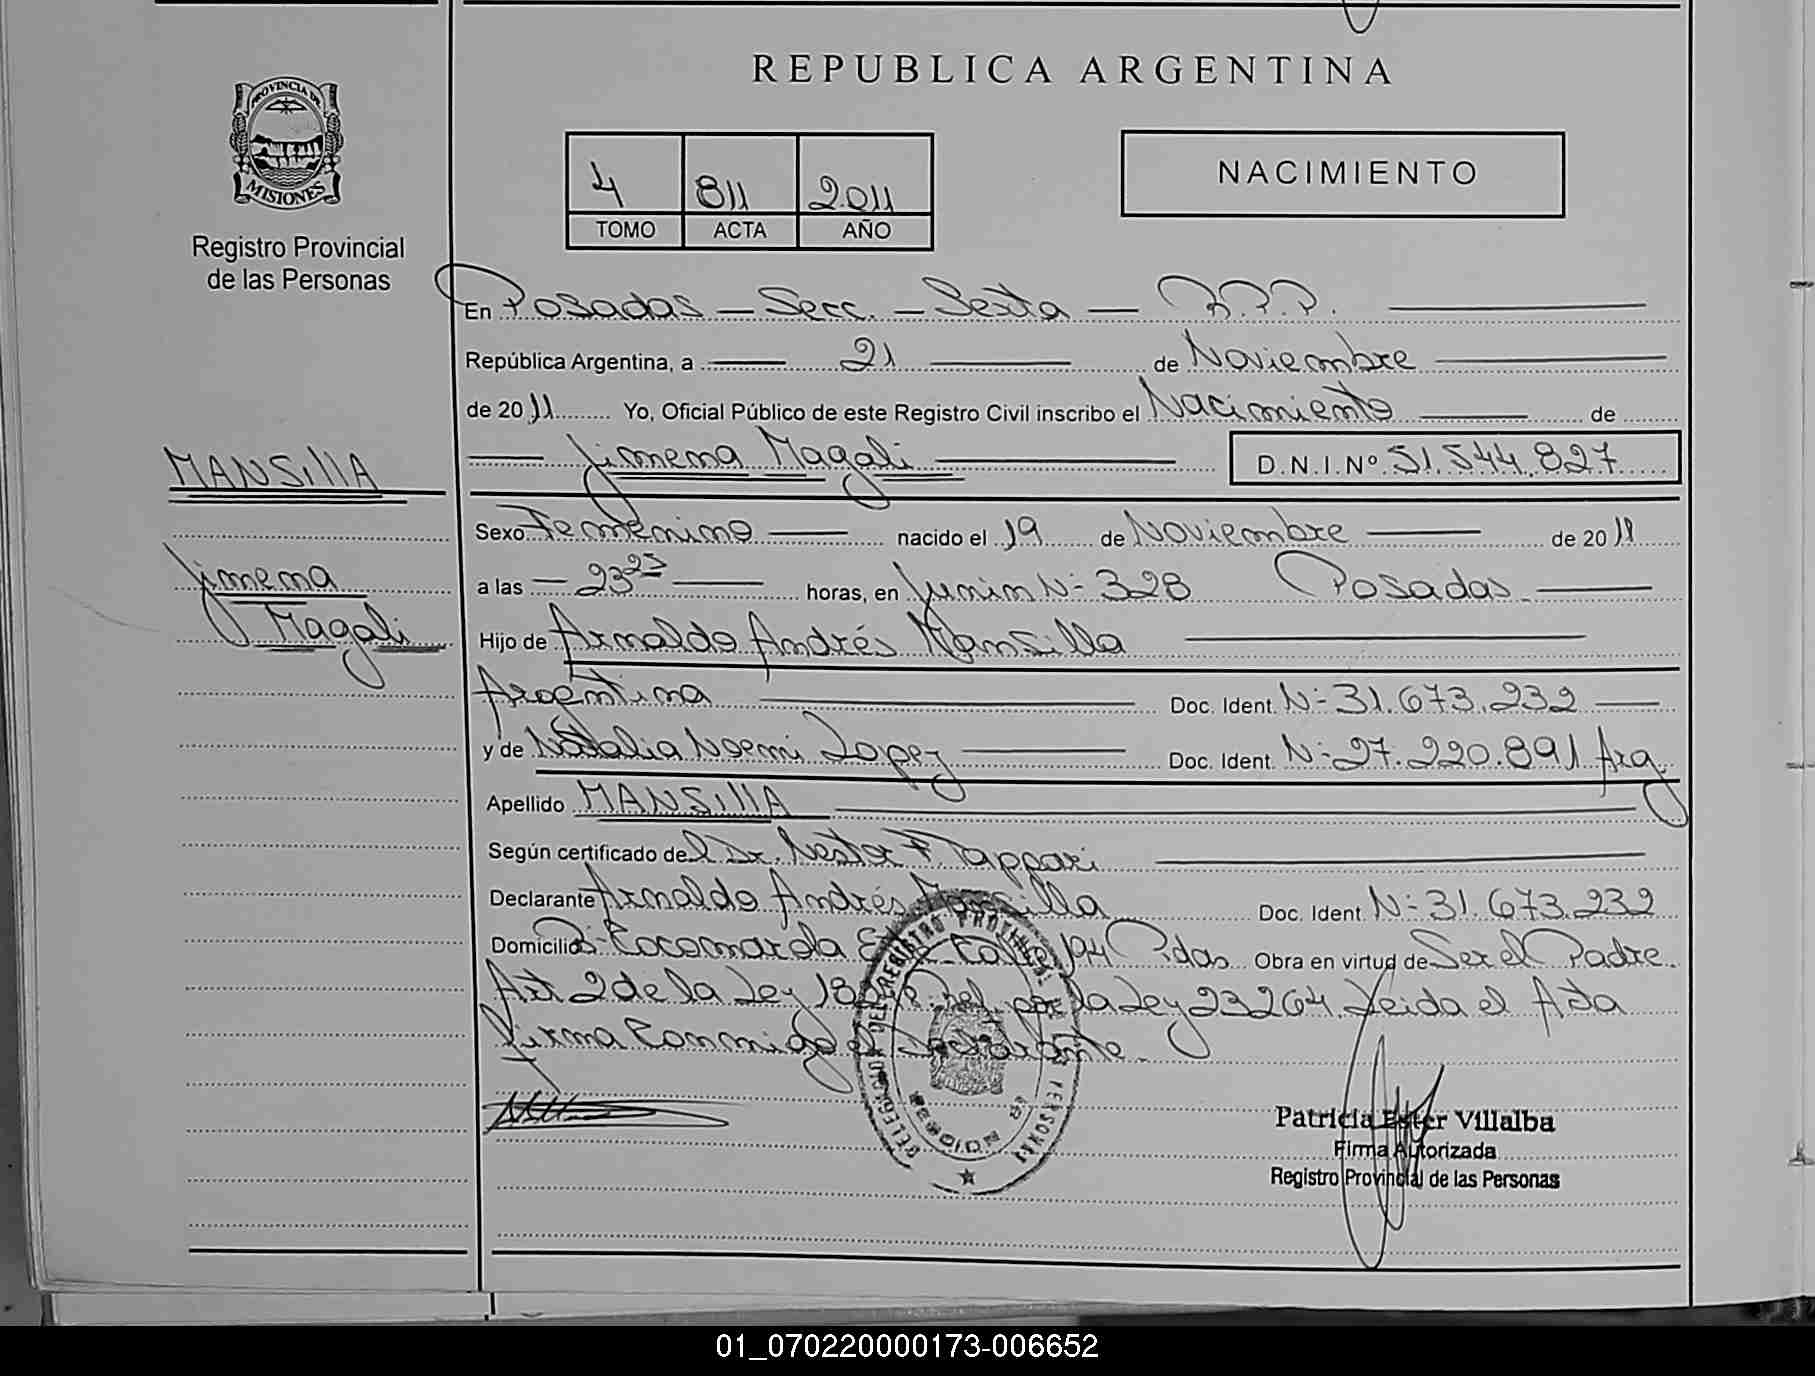 REPUBLICA ARGENTINA
PROVINCIA DE
MISIONES
Registro Provincial
de las Personas
4 811 2011
TOMO ACTA AÑO
NACIMIENTO
En Posadas — Secc. — Sexta — R.P.P.
República Argentina, a 21 de Noviembre
de 2011 Yo, Oficial Público de este Registro Civil inscribo el Nacimiento de
Jimena Magali D.N.I.Nº 51.544.827
MANSIllA
Jimena
Magali
Sexo Femenino nacido el 19 de Noviembre de 2011
a las 23 25 horas, en Junin Nº 328 Posadas
Hijo de Arnaldo Andrés Mansilla
Argentina Doc. Ident. Nº 31.673.232
y de Natalia Noemi Lopez Doc. Ident. Nº 27.220.891 Arg.
Apellido MANSIllA
Según certificado del Dr. Nestor F Tappari
Declarante Arnaldo Andrés Mansilla Doc. Ident. Nº 31.673.232
Domicilio Bº Cocomarola Calle 194 Pdas. Obra en virtud de Ser el Padre.
Art 2 de la Ley por la Ley 23264. Leida el Acta
firma Conmigo el Declarante.
Patricia Ester Villalba
Firma Autorizada
Registro Provincial de las Personas
01_070220000173-006652